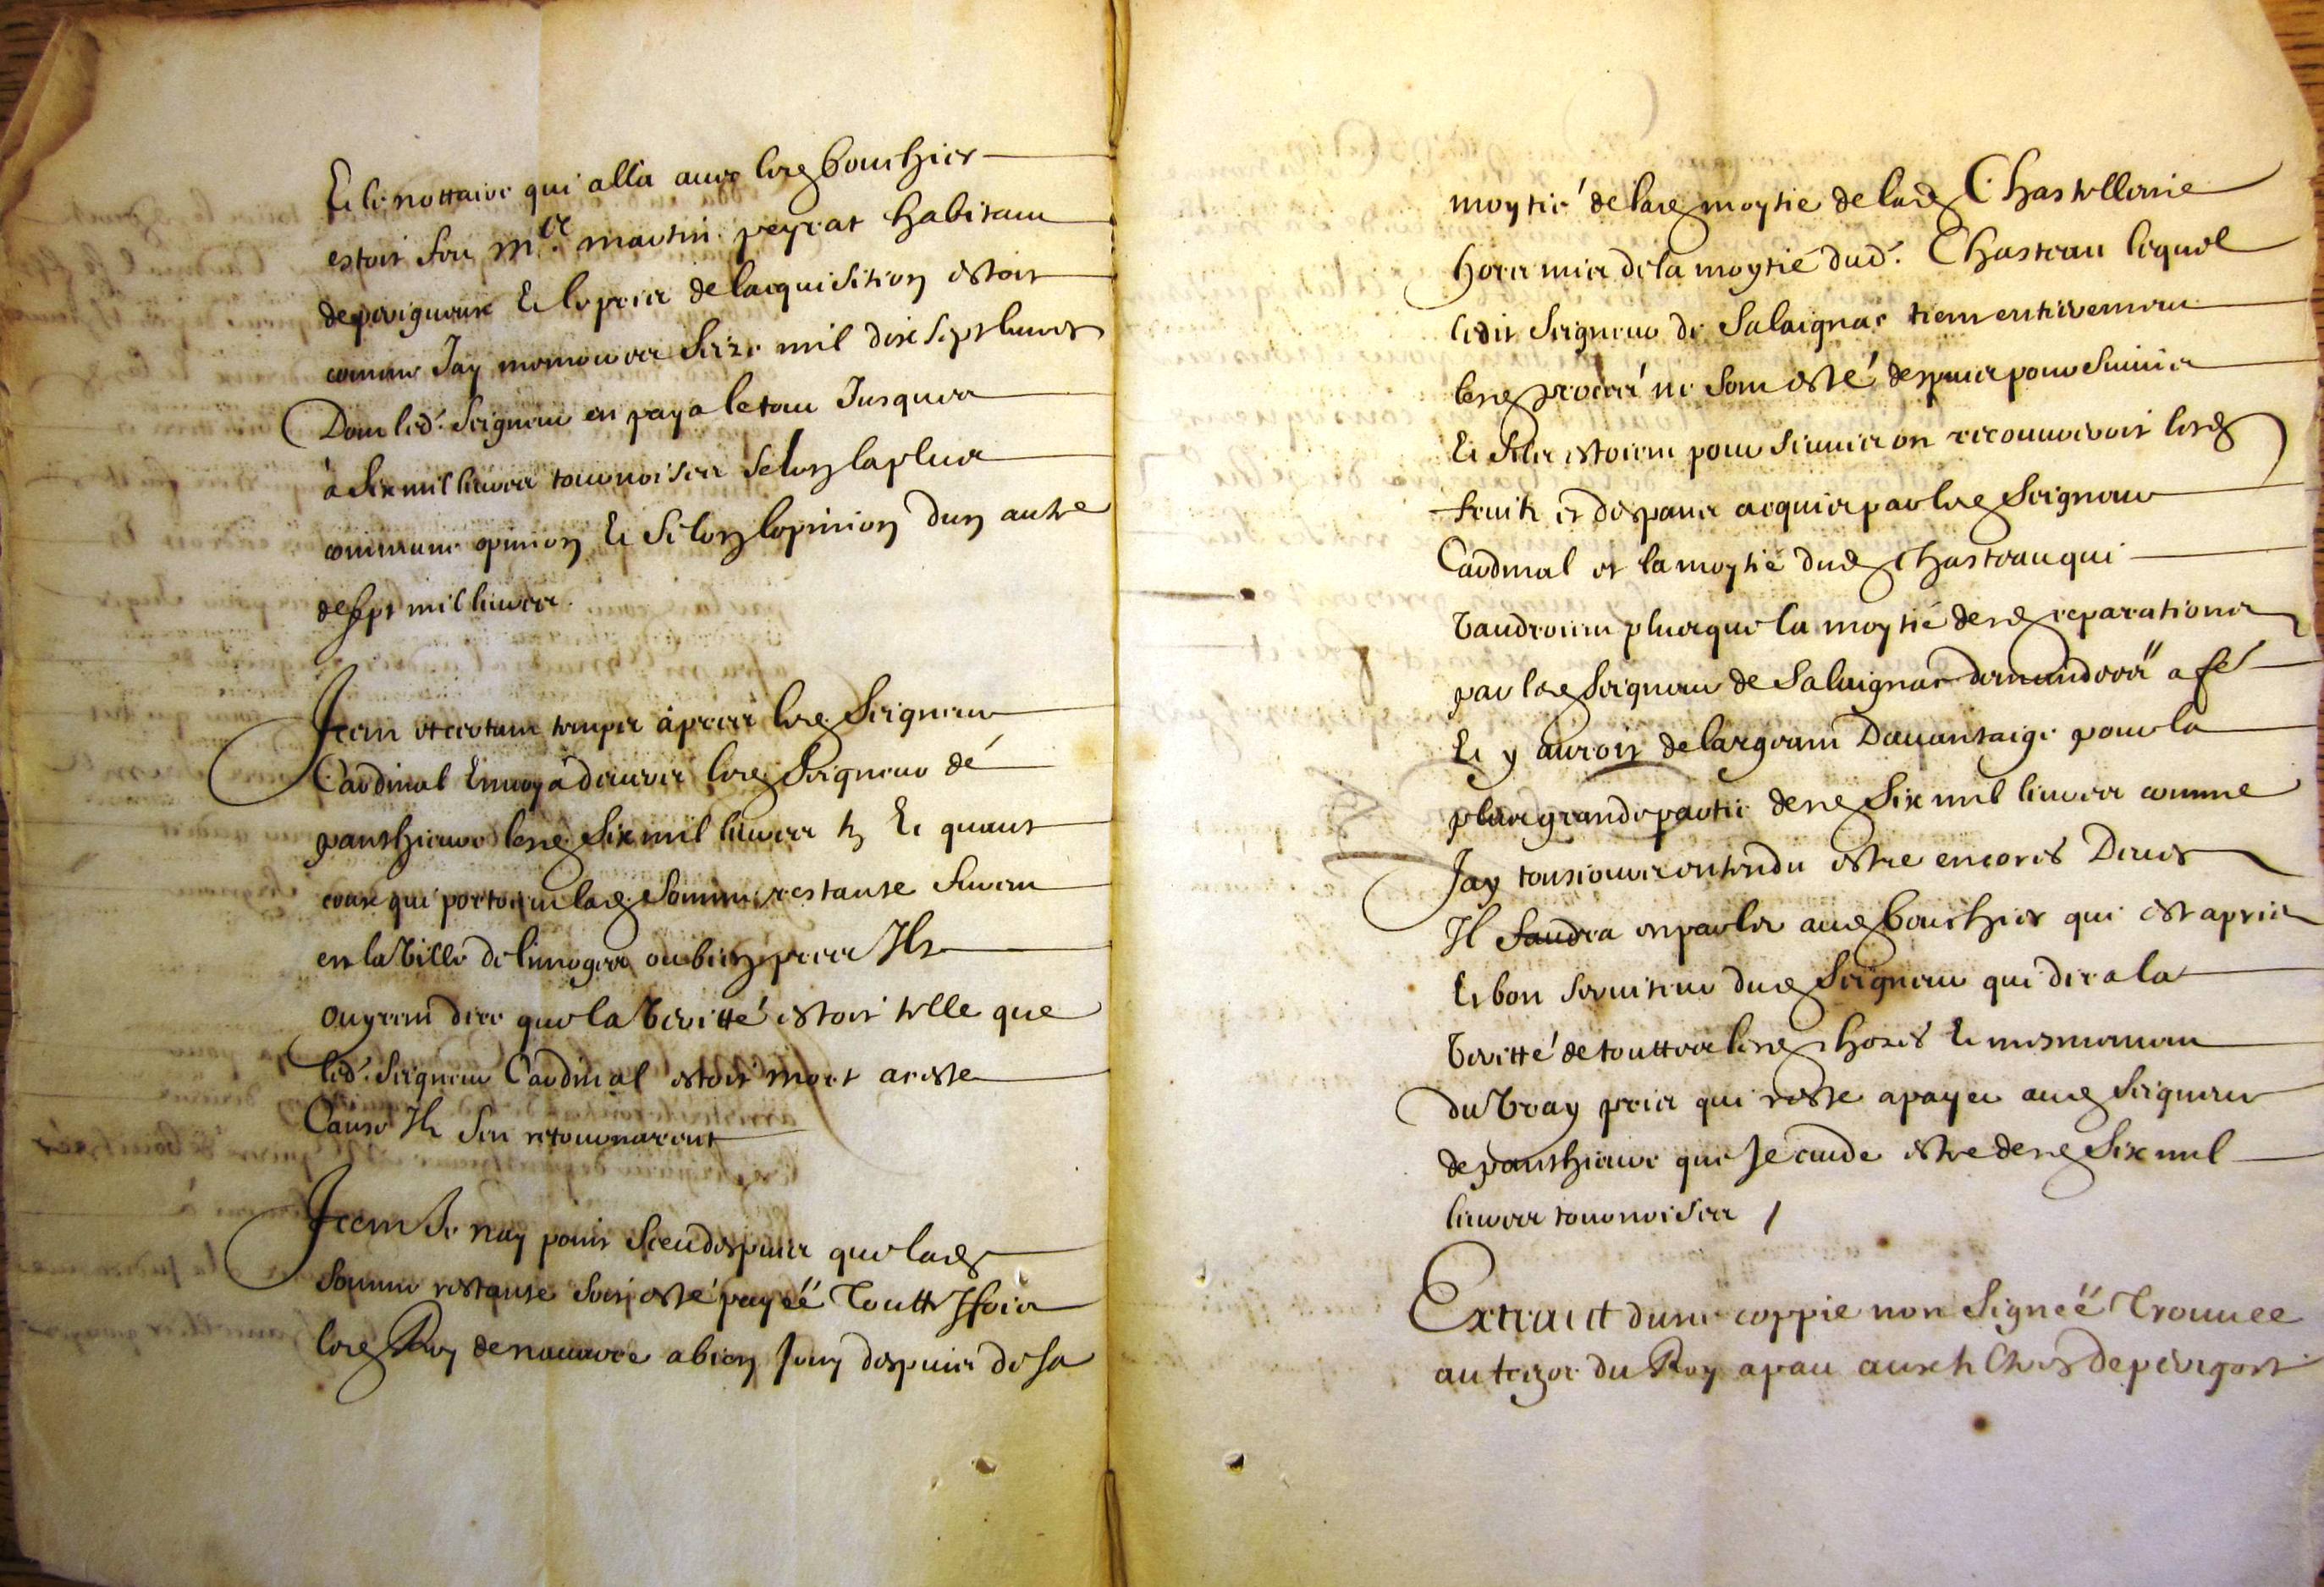 Et le nottaire qui alla avec led bouchier
estoit feu m.e martin peyrat habitant
de perigueux Et le pris de lacquisition estoit
comme Jay memoire seize mil dix sept livres
Dont led. Seigneur en paya letant Jusques
à Six mil livres tournoises Selon la plus
commune opinion Et Selon lopinion dun autre
de sept mil livres.
Item et certain temps àpres led Seigneur
Cardinal Envoya devers led Seigneur dé
panthieure lesd Six mil livres tz Et quant
ceux qui portoient lad Somme restante furent
en la Ville de limoges ou bien pres Ilz
ouyrent dire que la Veritté estoit telle que
led. Seigneur Cardinal estoit mort a ceste
Cause Ilz Sen retournarent
Item Je nay point sceu despuis que lad
Somme restante soit esté payéé Touttesfois
led Roy de navarre a bien Jouy despuis de sa
moytié de lad moytie de lad Chastellenie
hors mis de la moytié dud. Chasteau lequel
ledit Seigneur de Salaignac tient entierement
lesd procés ne sont esté despuis poursuivis
Et silz estoient poursuivis on recouvreroit lesd
fruitz et despans acquis par led Seigneur
Cardinal et la moytié dud Chasteau qui
Vaudroient plus que la moytié desd reparations
par led Seigneur de Salaignac
Et y auroit de largent Davantaige pour la
plus grande partie desd Six mil livres comme
Jay tousiours entendu estre encores Deues
Il faudra en parler aud bouchier qui est apris
Et bon serviteur dud Seigneur qui dira la
Veritté de touttes lesd choses Et mesmement
du Vray pris qui reste a payer aud Seigneur
de panthieure que Je cuide estre desd Six mil
livres tournoises /
Extraict dune coppie non Signéé Trouvee
au trezor du Roy a pau aux h de perigort